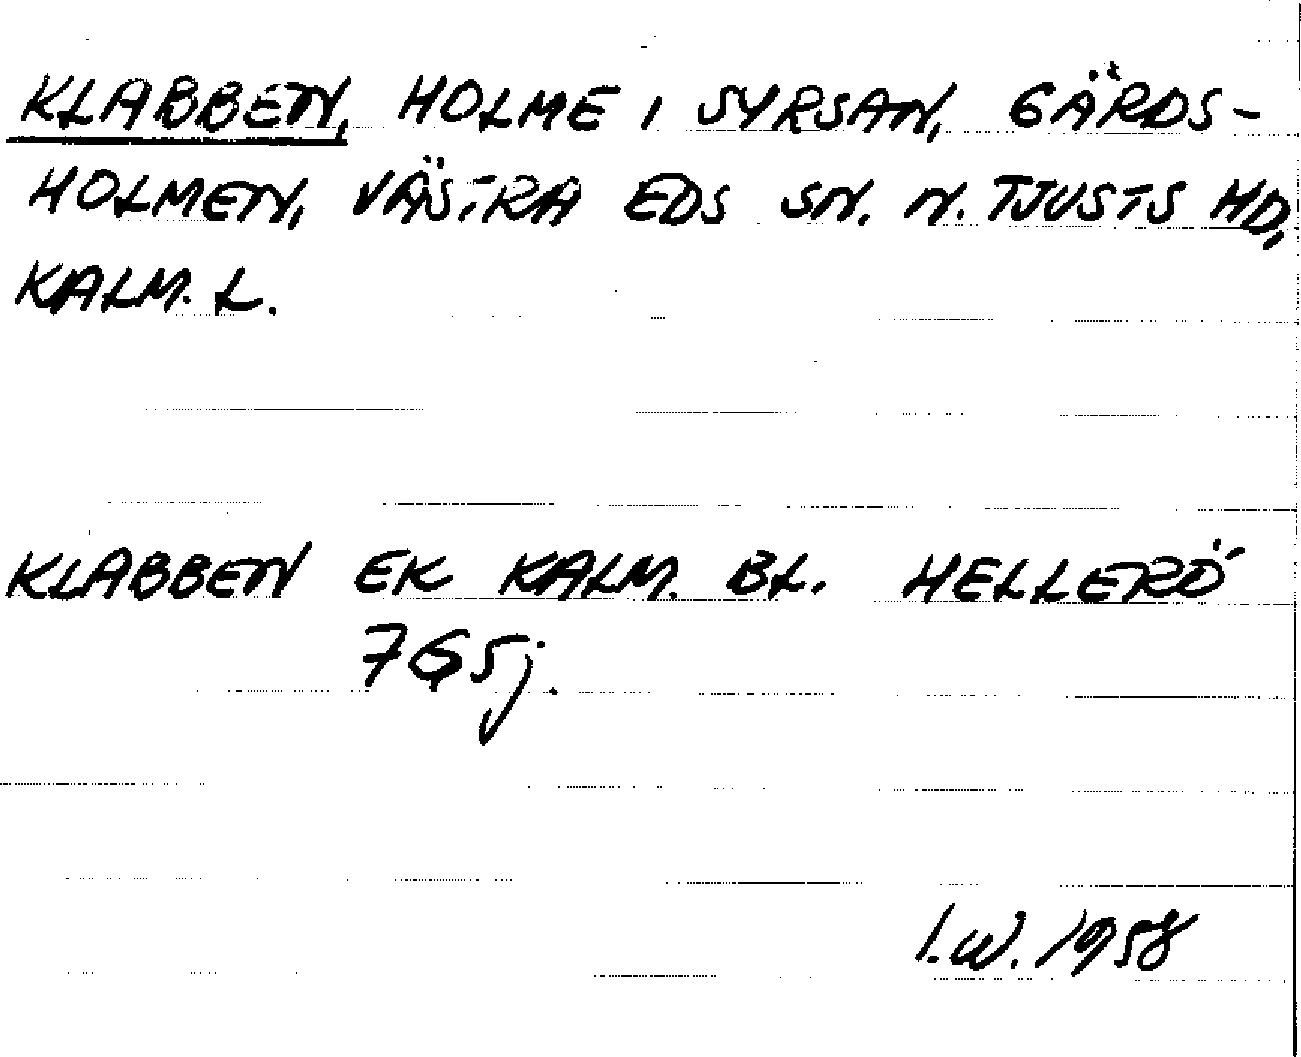 KLABBEN, HOLME I SYRSAN, GÄRDS-
HOLMEN, VÄSTRA EDS SN. N. TJUSTS HD,
KALM. L.
KLABBEN EK KALM. BL. HELLERÖ
765j.
I.W. 1958